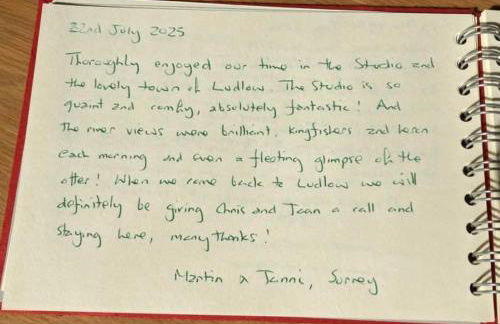 22nd July 2025
Thoroughly enjoyed our time in the Studio and
the lovely town of Ludlow. The Studio is so
quaint and comfy, absolutely fantastic! And
the river views were brilliant, kingfishers and heron
each morning and even a fleeting glimpse of the
otter! When we come back to Ludlow we will
definitely be giving Chris and Joan a call and
staying here, many thanks!
Martin & Tanni, Surrey